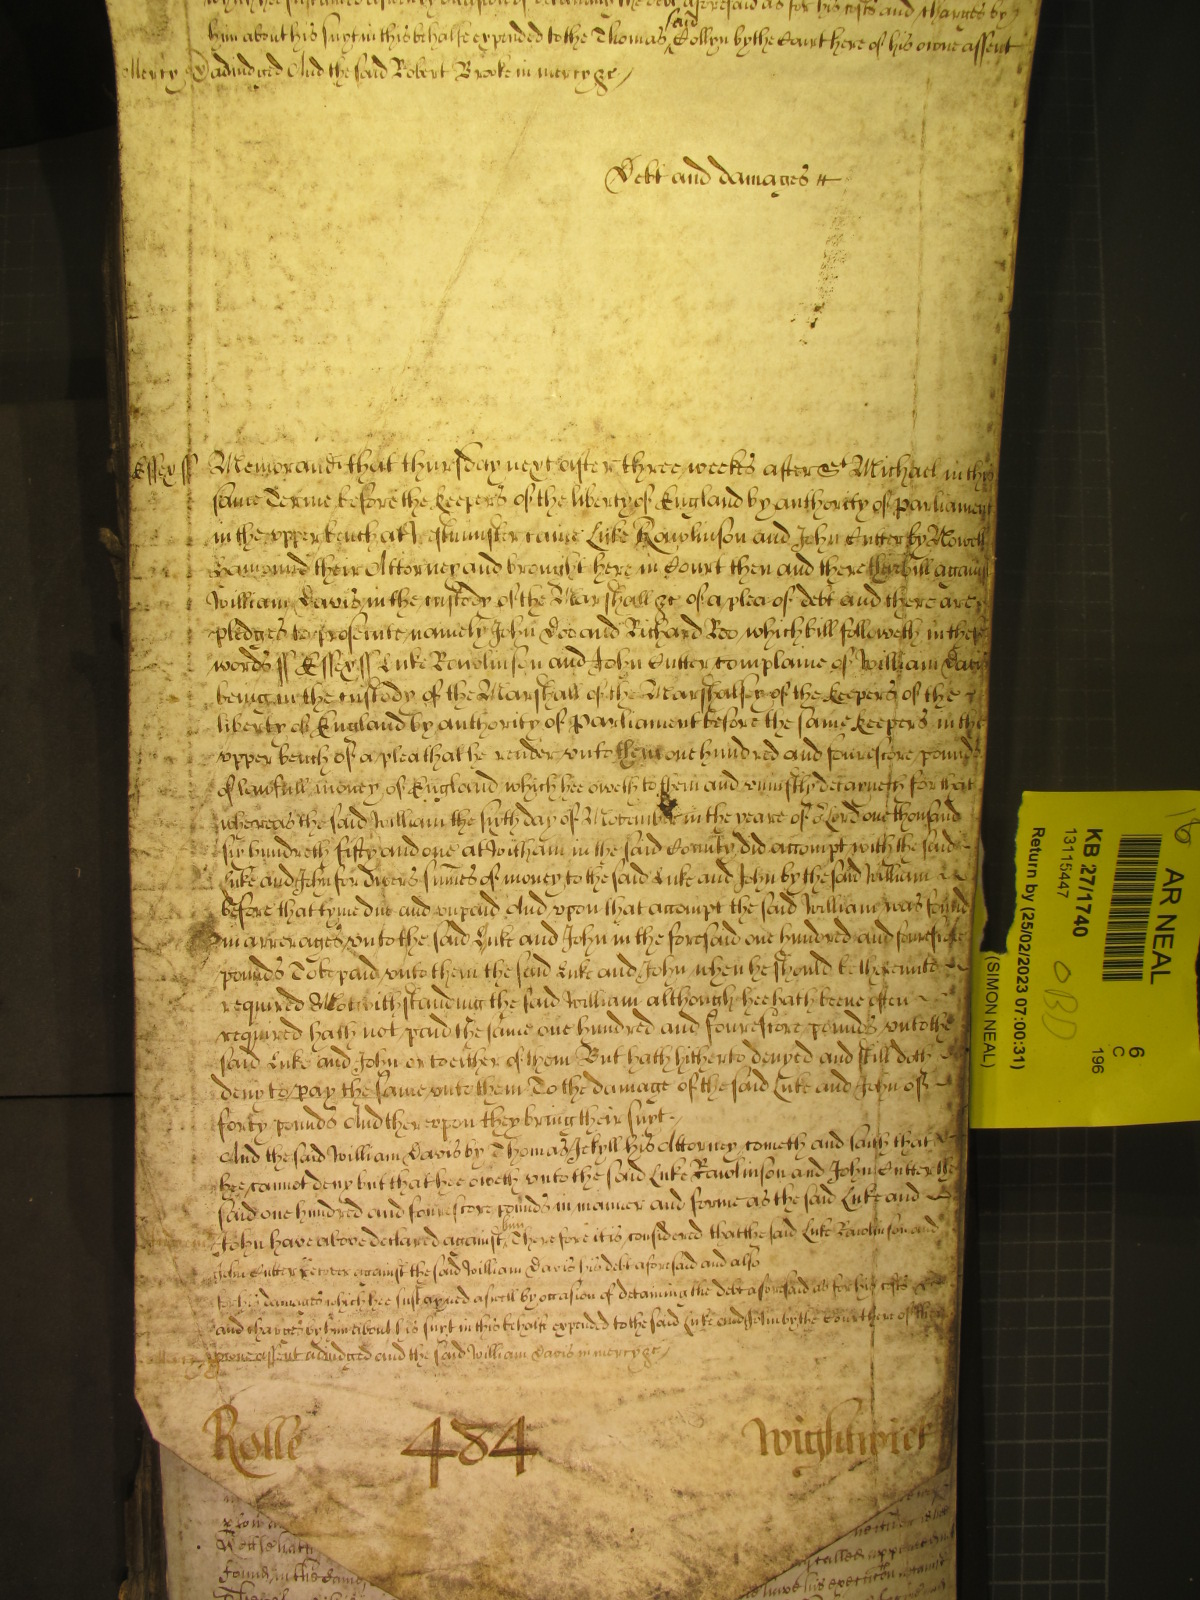 which hee susteyned aswell by occasion of detaining the debt aforesaid as for his costs and charges by
him about his suyt in this behalfe expended to the Thomas said Collyn by the Court here of his owne assent
Mercy adiudged And the said Robert Brooke in mercy &c
Debt and damages
Essex ss Memorand that thursday next after three weekes after St Michael in this
same Terme before the keepers of the liberty of England by authority of Parliament
in the vpper bench at Westminster came Luke Rawlinson and John Cutter by Nowell
their Attorney and brought here in Court then and there their bill against
William Davis in the custody of the Marshall &c of a plea of debt and there are
pledges to prosecute namely John Doo and Richard Roo which bill followeth in these
words ss Essex ss Luke Rawlinson and John Cutter complaine of William Davis
being in the custody of the Marshall of the Marshalsey of the keepers of the
liberty of England by authority of Parliament before the same keepers in the
vpper bench of a plea that he render vnto them one hundred and fourescore pounds
of lawfull money of England which hee oweth to them and vniustly detayneth for that
whereas the said William the sixth day of November in the yeare of or Lord one thousand
six hundreth fifty and one at Witham in the said County did accompt with the said
Luke and John for divers sumes of money to the said Luke and John by the said William
before that tyme due and vnpaid And vpon that accompt the said William was found
in arrerages vnto the said Luke and John in the foresaid one hundred and fourescore
pounds To be paid vnto them the said Luke and John when he should be therevnto
required Notwithstanding the said William although hee hath beene often
required hath not paid the same one hundred and fourescore pounds vnto the
said Luke and John or to either of them But hath hitherto denyed and still doth
deny to pay the same vnto them To the damage of the said Luke and John of
forty pounds And therevpon they bring their suyt
And the said William Davis by Thomas Jekyll his Attorney cometh and saith that
hee cannot deny but that hee oweth vnto the said Luke Rawlinson and John Cutter the
said one hundred and fourescore pounds in manner and forme as the said Luke and
John have above declared against him Therefore it is considered that the said Luke Rawlinson and
John Cutter recover against the said William Davis his debt aforesaid and also
for his damages which hee susteyned aswell by occasion of detaining the debt aforesaid as for his costs
and charges by him about his suyt in this behalfe expended to the said Luke and John by the Court here of their
owne assent adiudged and the said William Davis in mercy &c
Rolle 484 Wightwick
found in the same
AR NEAL
KB 27/1740
13115447
Return by (25/02/2023 07:00:31)
(SIMON NEAL)
6
C
196
OBD